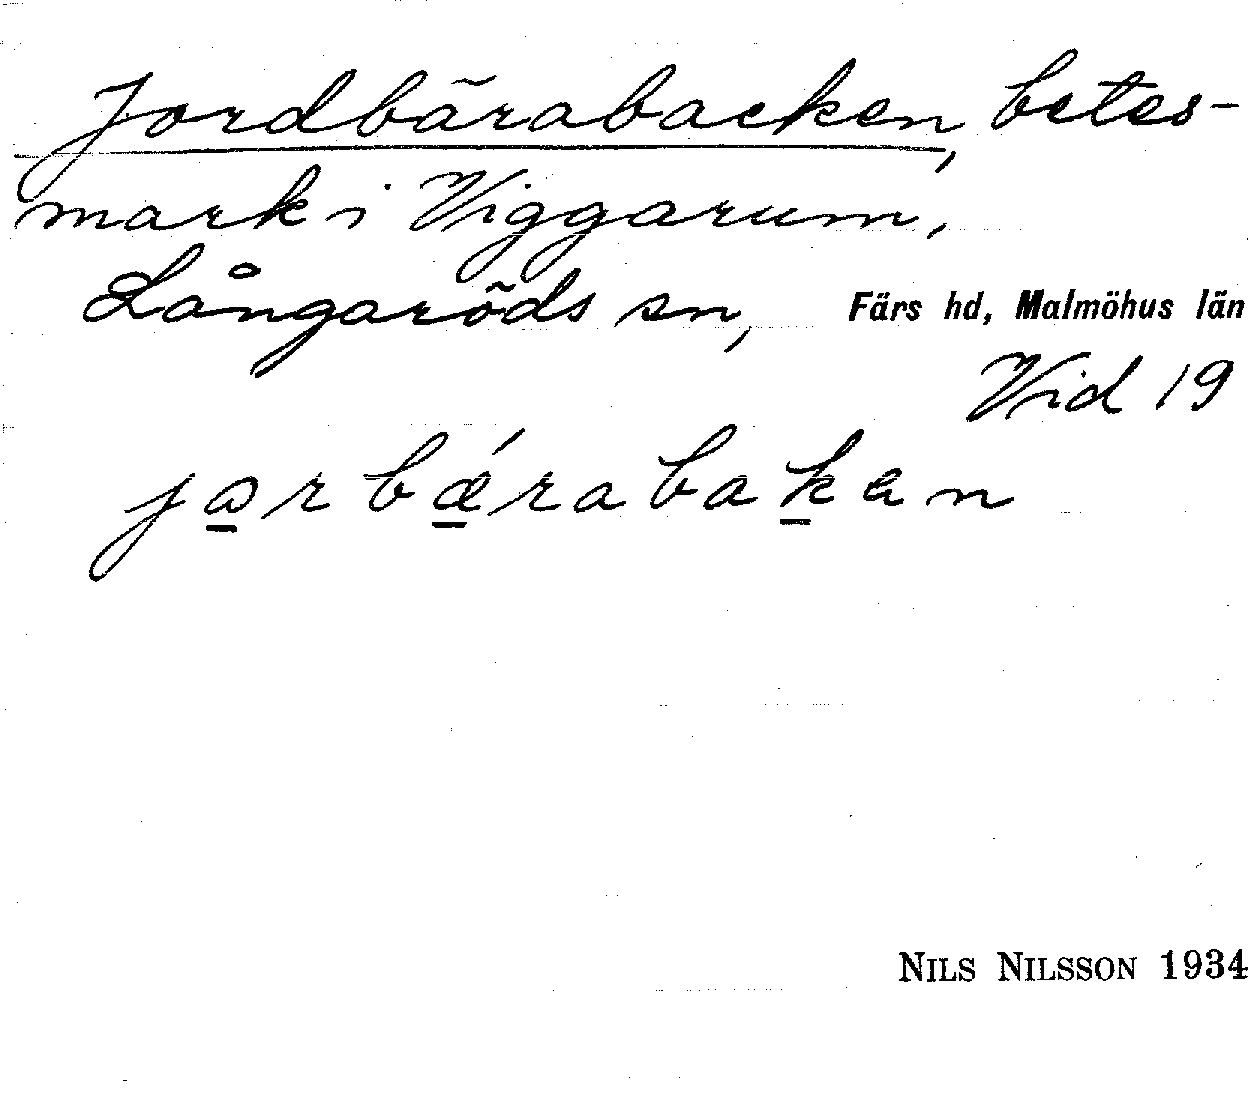 Jordbärabacken, betes-
mark i Viggarum,
Långaröds sn, Färs hd, Malmöhus län
Vid 19
jo̲rbǽ̲rabak̲an
NILS NILSSON 1934